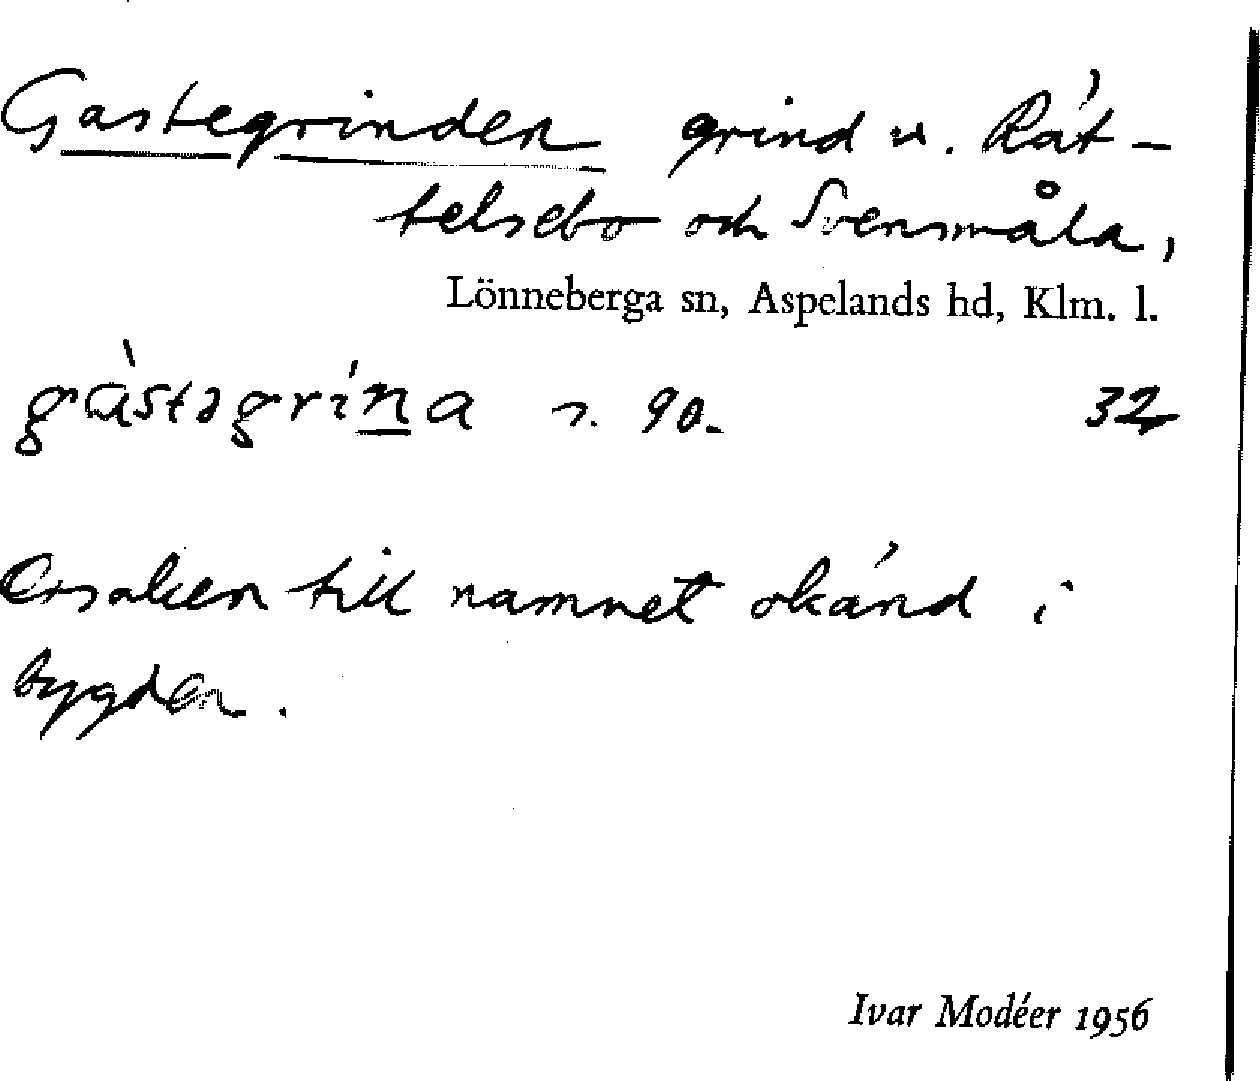 Gastegrinden grind u. Rät-
telsebo och Svensmåla,
Lönneberga sn, Aspelands hd, Klm. l.
gàstəgrína s. 90. 32
Orsaken till namnet okänd i
bygden.
Ivar Modéer 1956